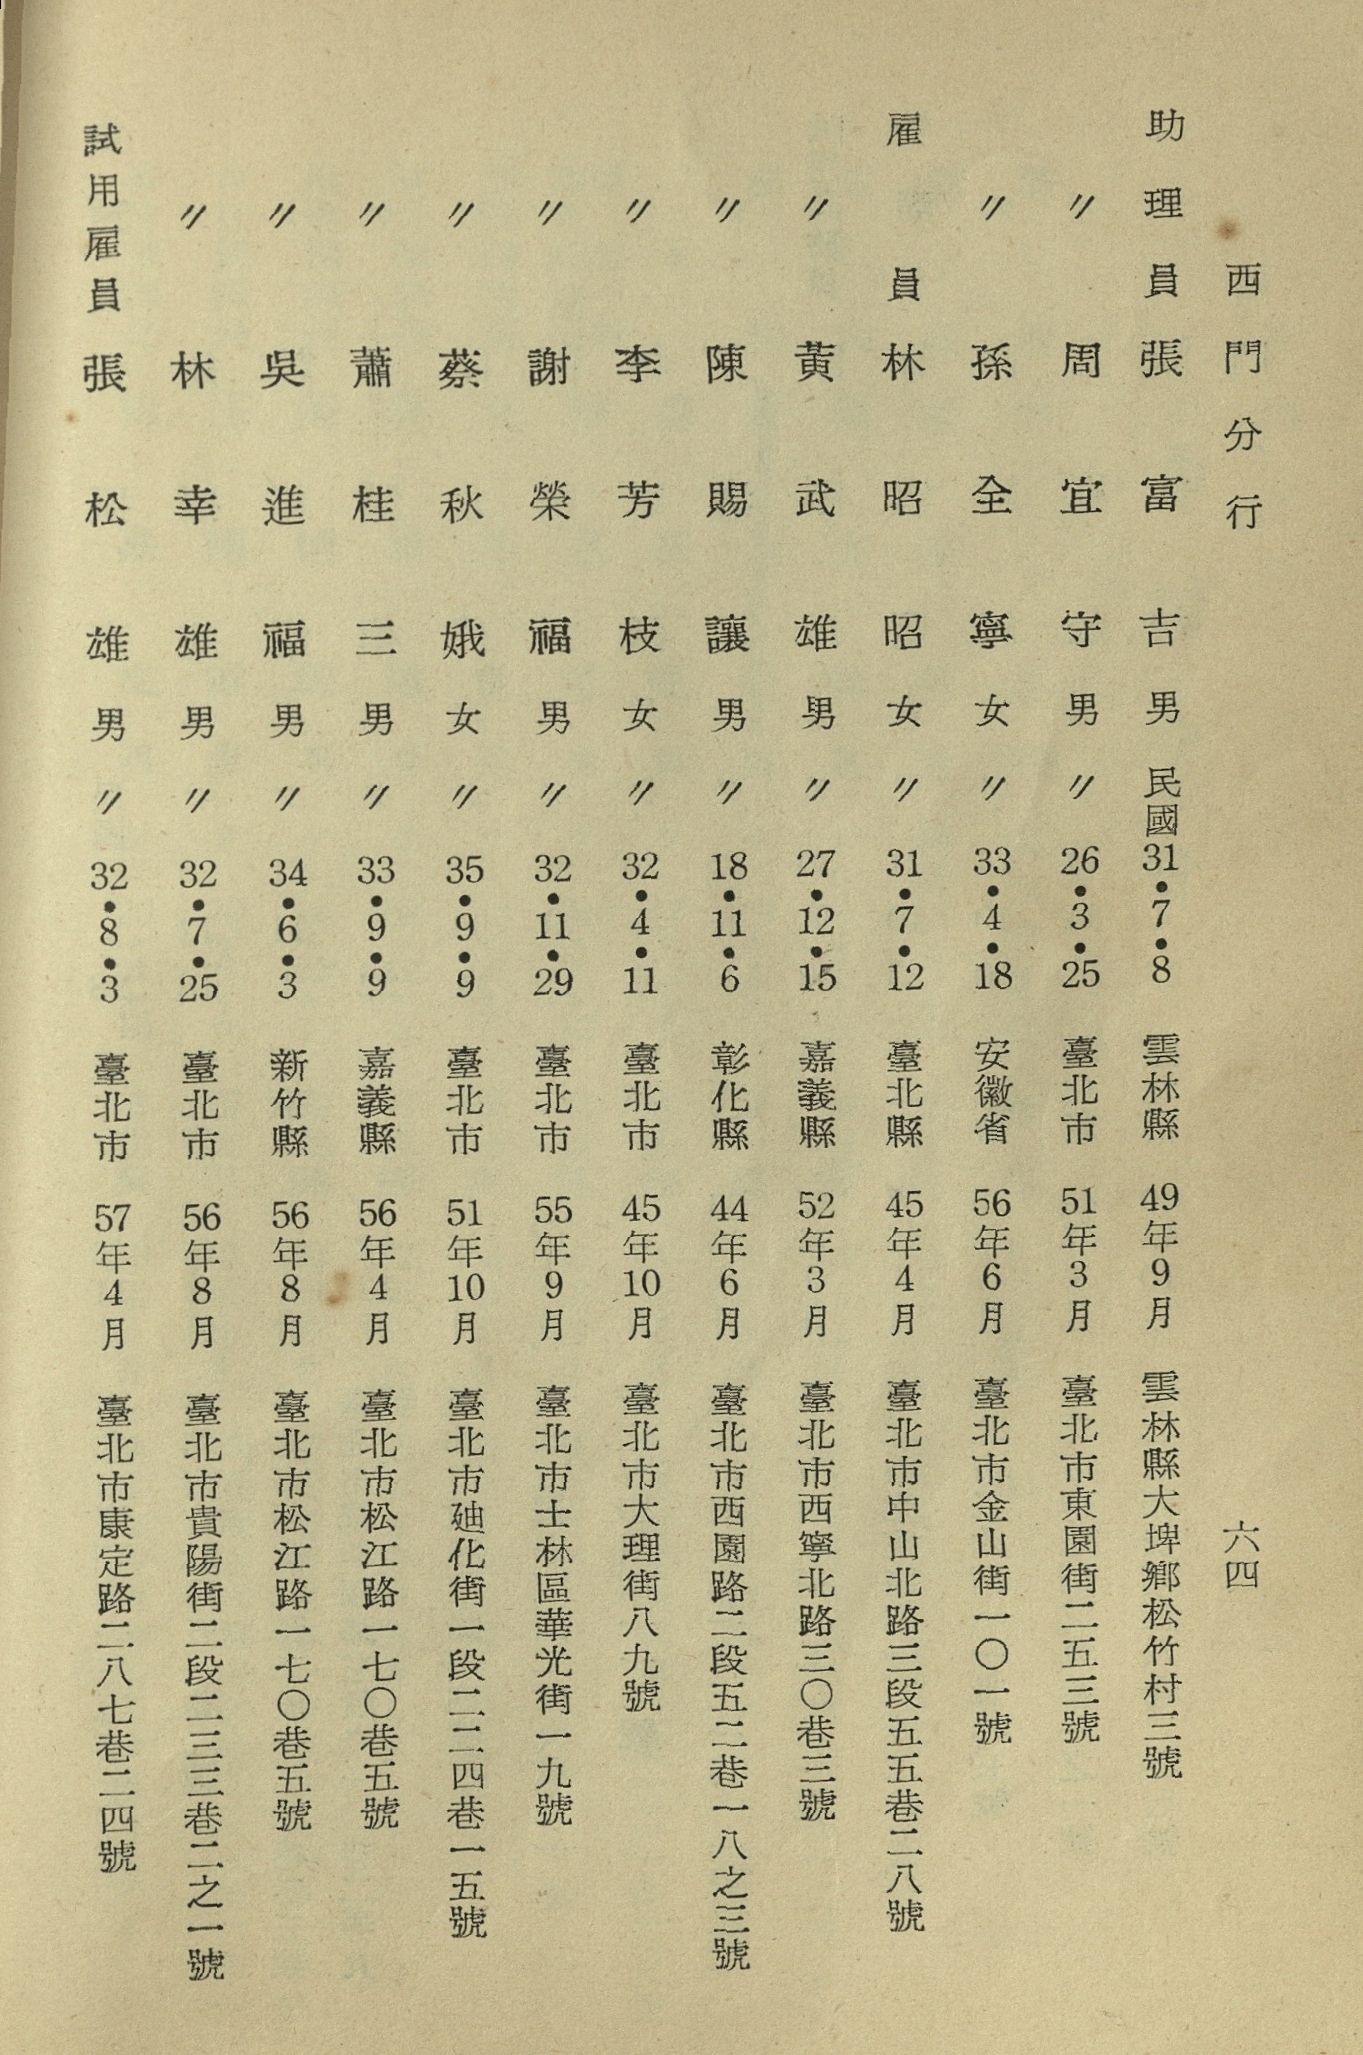 西門分行　六四
助理員 張富吉 男 民國31•7•8 雲林縣 49年9月 雲林縣大埤鄉松竹村三號
〃 周宜守 男 〃 26•3•25 臺北市 51年3月 臺北市東園街二五三號
〃 孫全寧 女 〃 33•4•18 安徽省 56年6月 臺北市金山街一〇一號
雇員 林昭昭 女 〃 31•7•12 臺北縣 45年4月 臺北市中山北路三段五五巷二八號
〃 黃武雄 男 〃 27•12•15 嘉義縣 52年3月 臺北市西寧北路三〇巷三號
〃 陳賜讓 男 〃 18•11•6 彰化縣 44年6月 臺北市西園路二段五二巷一八之三號
〃 李芳枝 女 〃 32•4•11 臺北市 45年10月 臺北市大理街八九號
〃 謝榮福 男 〃 32•11•29 臺北市 55年9月 臺北市士林區華光街一九號
〃 蔡秋娥 女 〃 35•9•9 臺北市 51年10月 臺北市廸化街一段二二四巷一五號
〃 蕭桂三 男 〃 33•9•9 嘉義縣 56年4月 臺北市松江路一七〇巷五號
〃 吳進福 男 〃 34•6•3 新竹縣 56年8月 臺北市松江路一七〇巷五號
〃 林幸雄 男 〃 32•7•25 臺北市 56年8月 臺北市貴陽街二段二三三巷二之一號
試用雇員 張松雄 男 〃 32•8•3 臺北市 57年4月 臺北市康定路二八七巷二四號